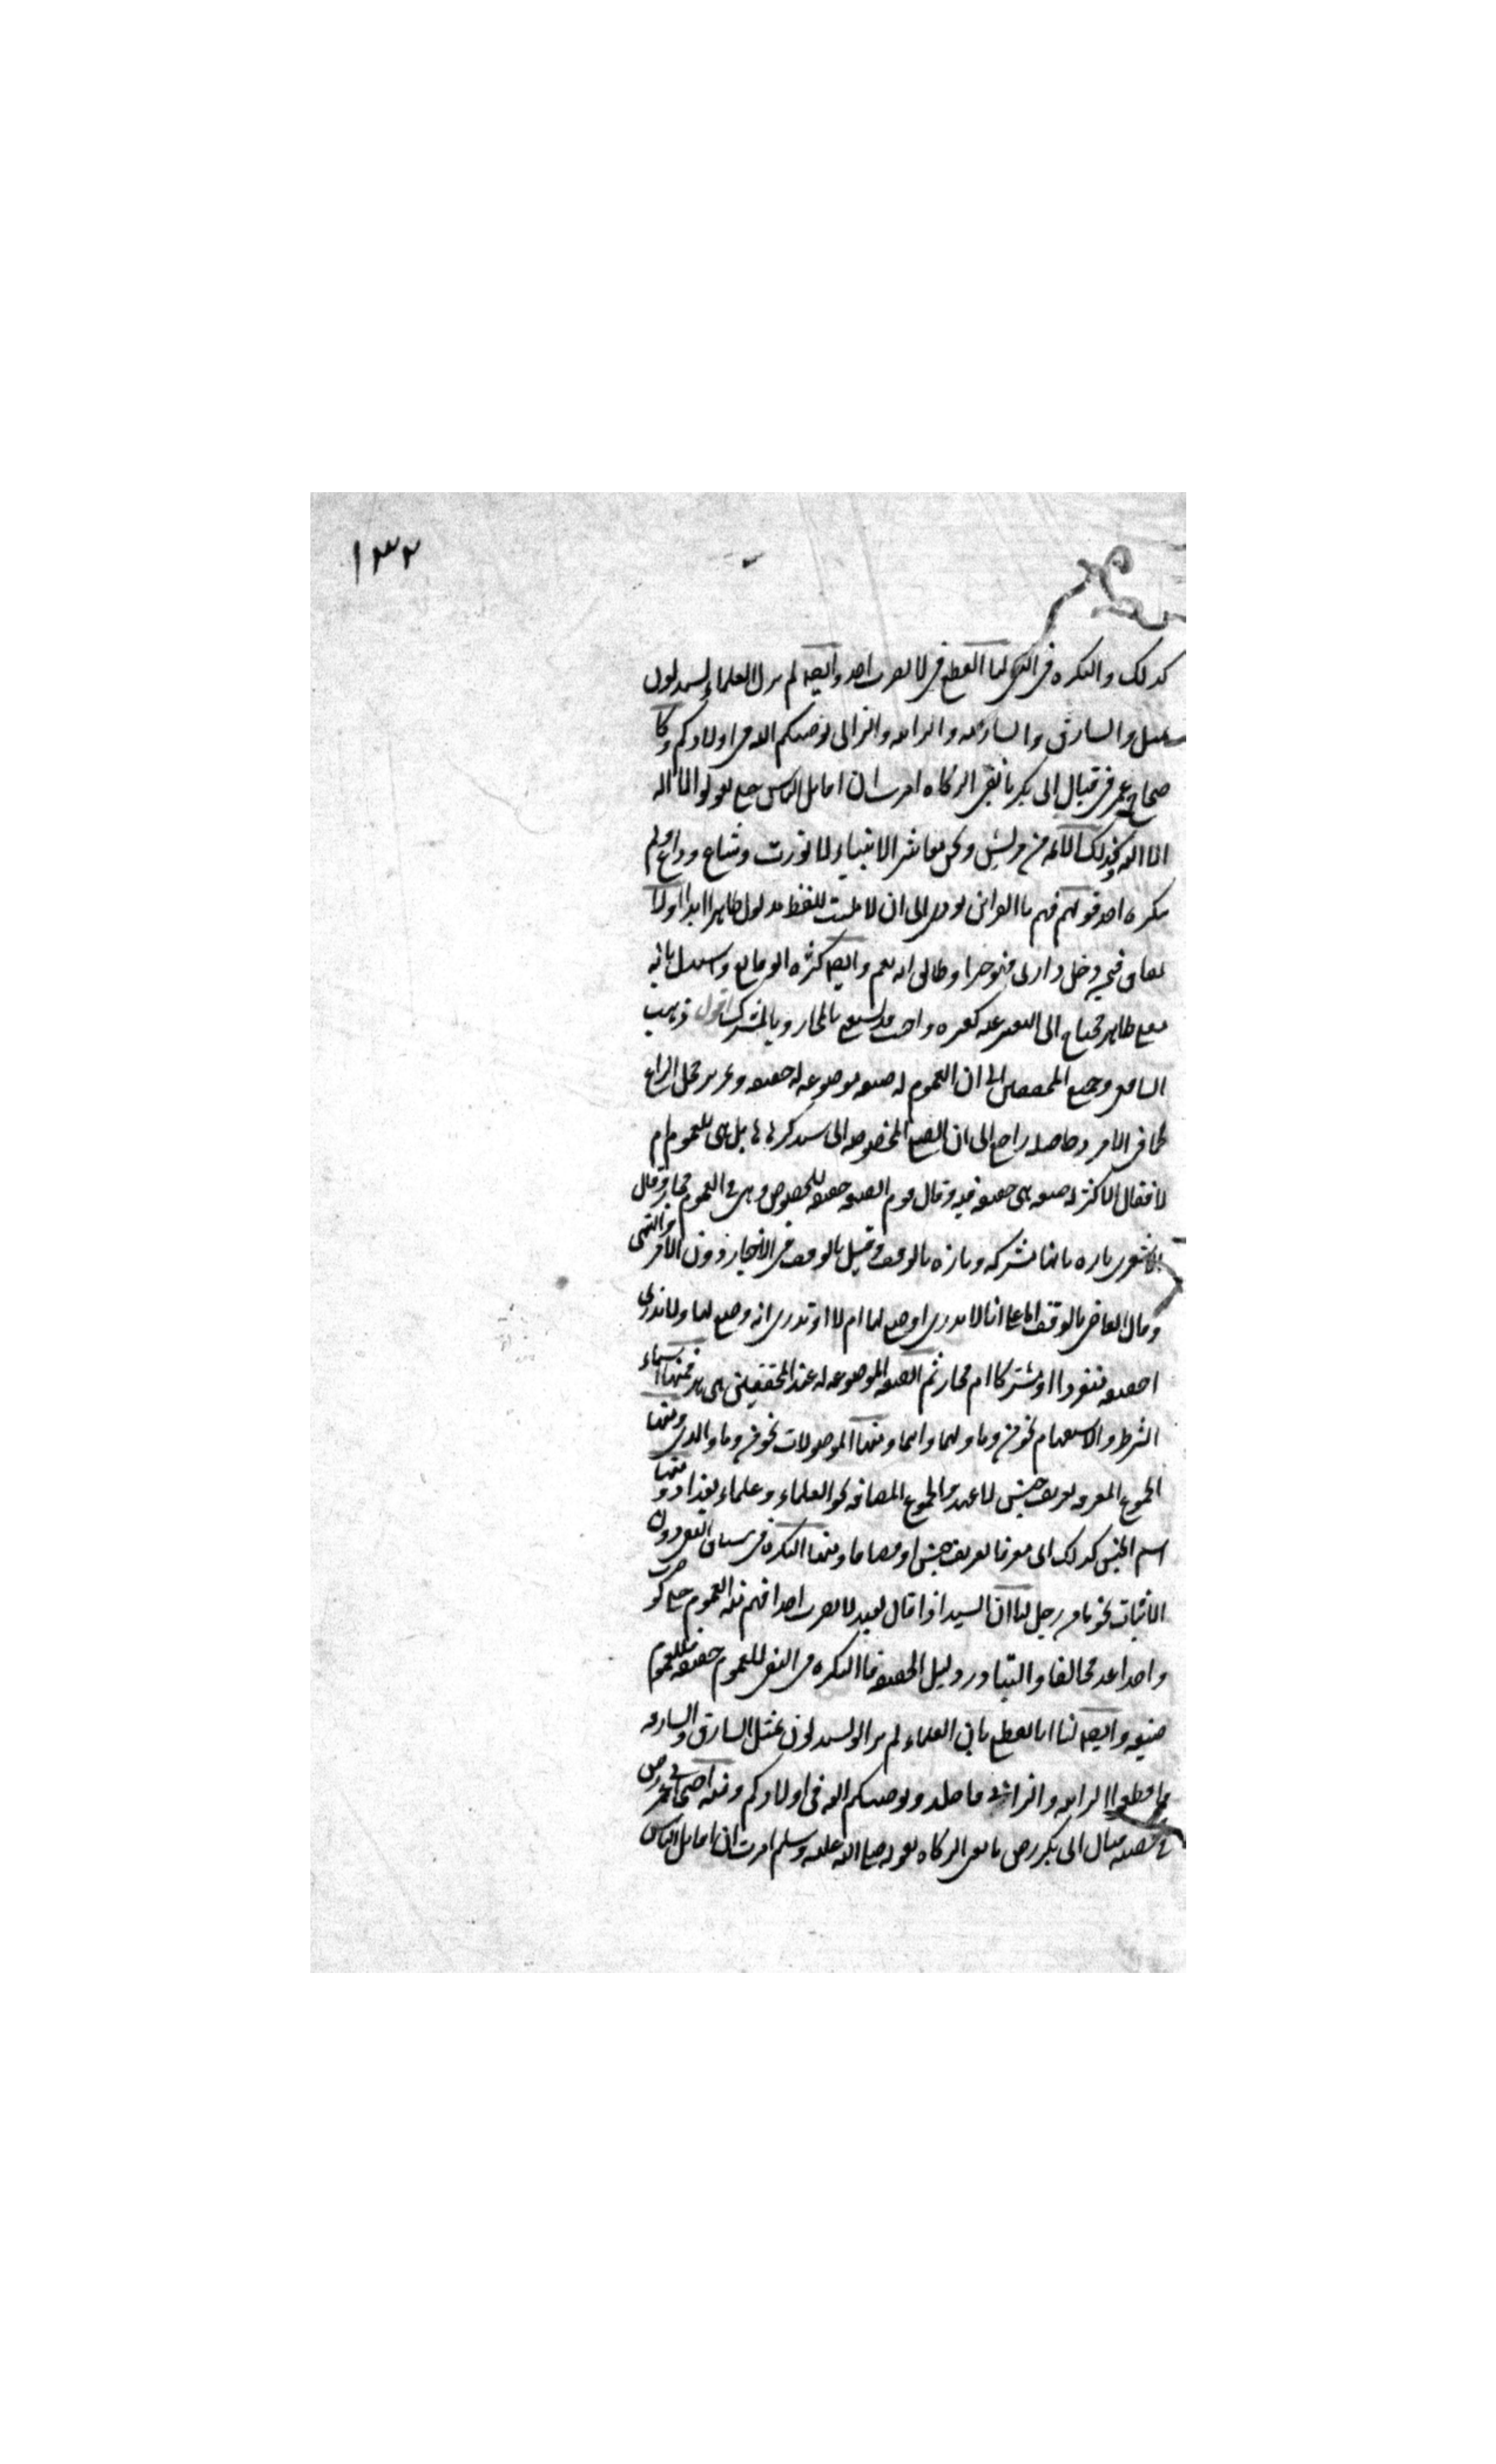 ١٣٢
كذلك والنكرة في النفي لنا القطع في لا تضرب احدا وايضا لم يزل العلماء يستدلون
بمثل والسارق والسارقة والزانية والزاني يوصيكم الله في اولادكم وكا
حجاج عمر في قتال ابي بكر مانعي الزكاة امرت ان اقاتل الناس حتى يقولوا لا اله
الا الله وكذلك الائمة من قريش ونحن معاشر الانبياء لا نورث وشاع وذاع ولم
ينكره احد قولهم فهم بالقرائن يودي الى ان لا يثبت للفظ مدلول ظاهر ابدا اولا
تفاق في من دخل داري فهو حر او طالق انه يعم وايضا كثرة الوقائع واستدل بانه
معنى ظاهر محتاج الى التعبير عنه كغيره واجيب قد يستغنى بالمجاز وبالمشترك اقول ذهب
الشافعي وجميع المحققين الى ان العموم له صيغة موضوعة له حقيقة وتحرير محل النزاع
كما في الامر وحاصله راجع الى ان الصيغ المخصوصة التي سنذكرها هل هي للعموم ام
لا فقال الاكثر له صيغة هي حقيقة فيه وقال قوم الصيغة حقيقة للخصوص وهي في العموم مجاز وقال
الاشعري تارة بانها مشتركة وتارة بالوقف وقيل بالوقف في الاخبار دون الامر والنهي
وقال القاضي بالوقف اما على انا لا ندري اوضع لها ام لا او ندري انه وضع لها ولا ندري
احقيقة منفردا او مشتركا ام مجاز ثم الصيغة الموضوعة له عند المحققين هي هذه فمنها اسماء
الشرط والاستفهام نحو من وما ومهما واينما ومنها الموصولات نحو من وما والذي ومنها
الجموع المعرفة تعريف جنس لا عهد والجموع المضافة نحو العلماء وعلماء بغداد ومنها
اسم الجنس كذلك اي معرفا تعريف جنس او مضافا ومنها النكرة في سياق النفي دون
الاثبات نحو ما من رجل لنا ان السيد اذا قال لعبده لا تضرب احدا فهم منه العموم حتى لو ضرب
واحدا عد مخالفا والتبادر دليل الحقيقة فالنكرة في النفي للعموم حقيقة فللعموم
صيغة وايضا لنا انا نقطع بان العلماء لم يزالوا يستدلون بمثل السارق والسارقة
فاقطعوا الزانية والزاني فاجلدوا ويوصيكم الله في اولادكم ومنه احتجاج عمر رض
في قصة قتال ابي بكر رض مانعي الزكاة بقوله صلى الله عليه وسلم امرت ان اقاتل الناس